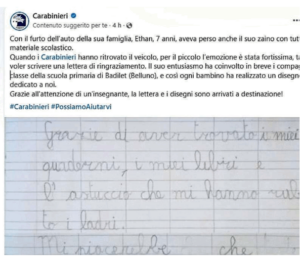 Carabinieri
Contenuto suggerito per te · 4 h ·
Con il furto dell'auto della sua famiglia, Ethan, 7 anni, aveva perso anche il suo zaino con tut
materiale scolastico.
Quando i Carabinieri hanno ritrovato il veicolo, per il piccolo l'emozione è stata fortissima, t
voler scrivere una lettera di ringraziamento. Il suo entusiasmo ha coinvolto in breve i compa
classe della scuola primaria di Badilet (Belluno), e così ogni bambino ha realizzato un disegn
dedicato a noi.
Grazie all'attenzione di un'insegnante, la lettera e i disegni sono arrivati a destinazione!
#Carabinieri #PossiamoAiutarvi
Grazie di aver trovato i miei
quaderni, i miei libri e
l'astuccio che mi hanno rub
to i ladri.
Mi piacerebbe che